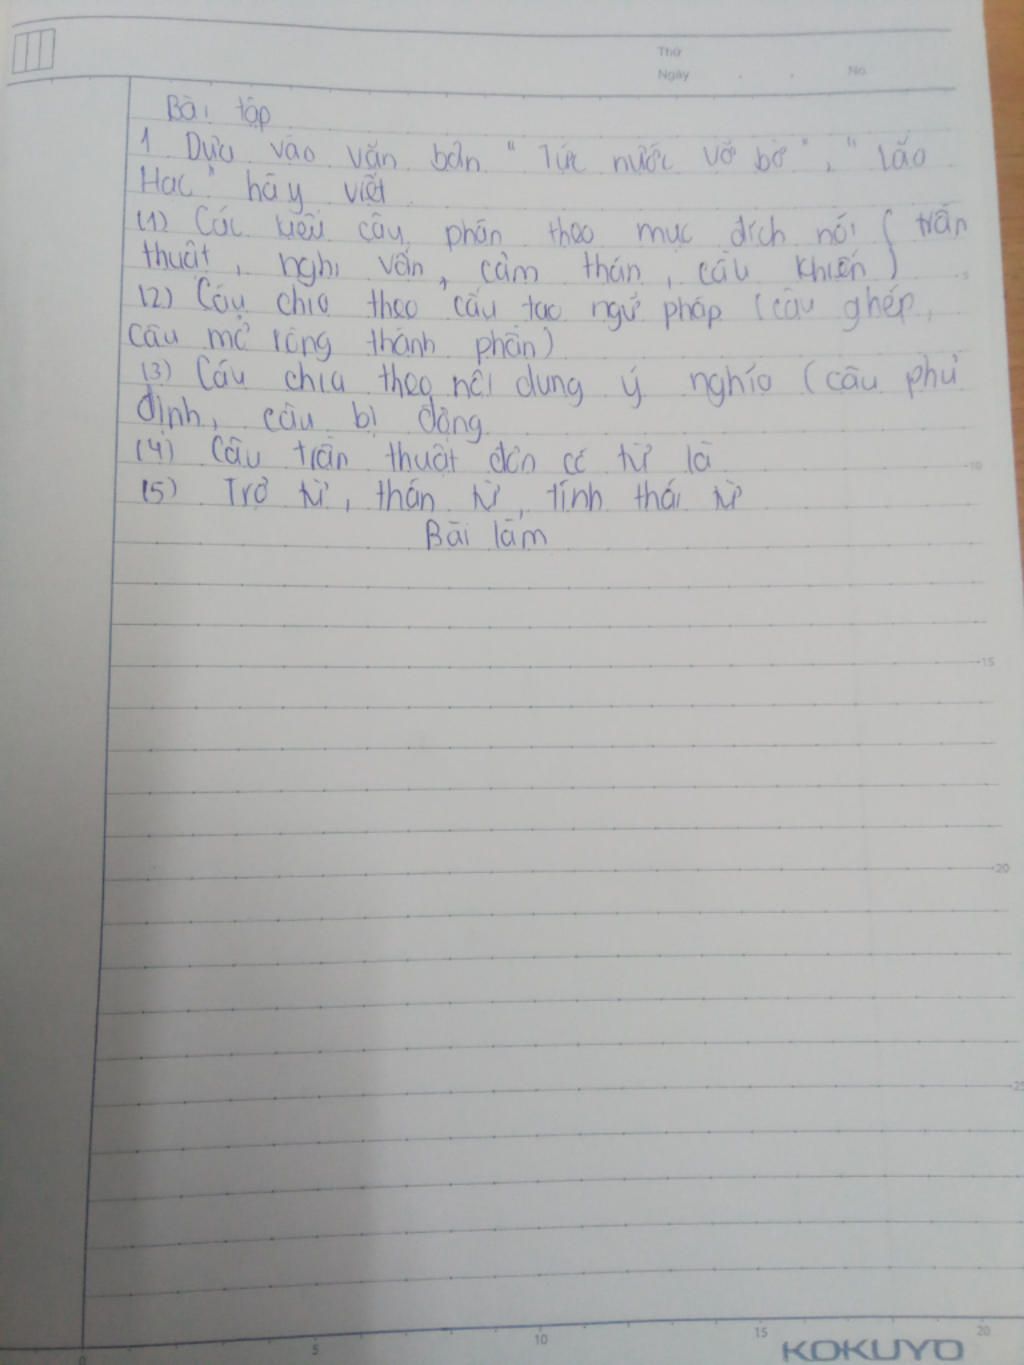 Thứ
Ngày . . No.
Bài tập
1 Dựa vào văn bản "Tức nước vỡ bờ", "Lão
Hạc" hãy viết
(1) Các kiểu câu phân theo mục đích nói (trần
thuật, nghi vấn, cảm thán, cầu khiến)
(2) Câu chia theo cấu tạo ngữ pháp (câu ghép,
câu mở rộng thành phần)
(3) Câu chia theo nội dung ý nghĩa (câu phủ
định, câu bị động
(4) Câu trần thuật đơn có từ là
(5) Trợ từ, thán từ, tính thái từ
Bài làm
5
10
15
20
25
0 5 10 15 20
KOKUYO